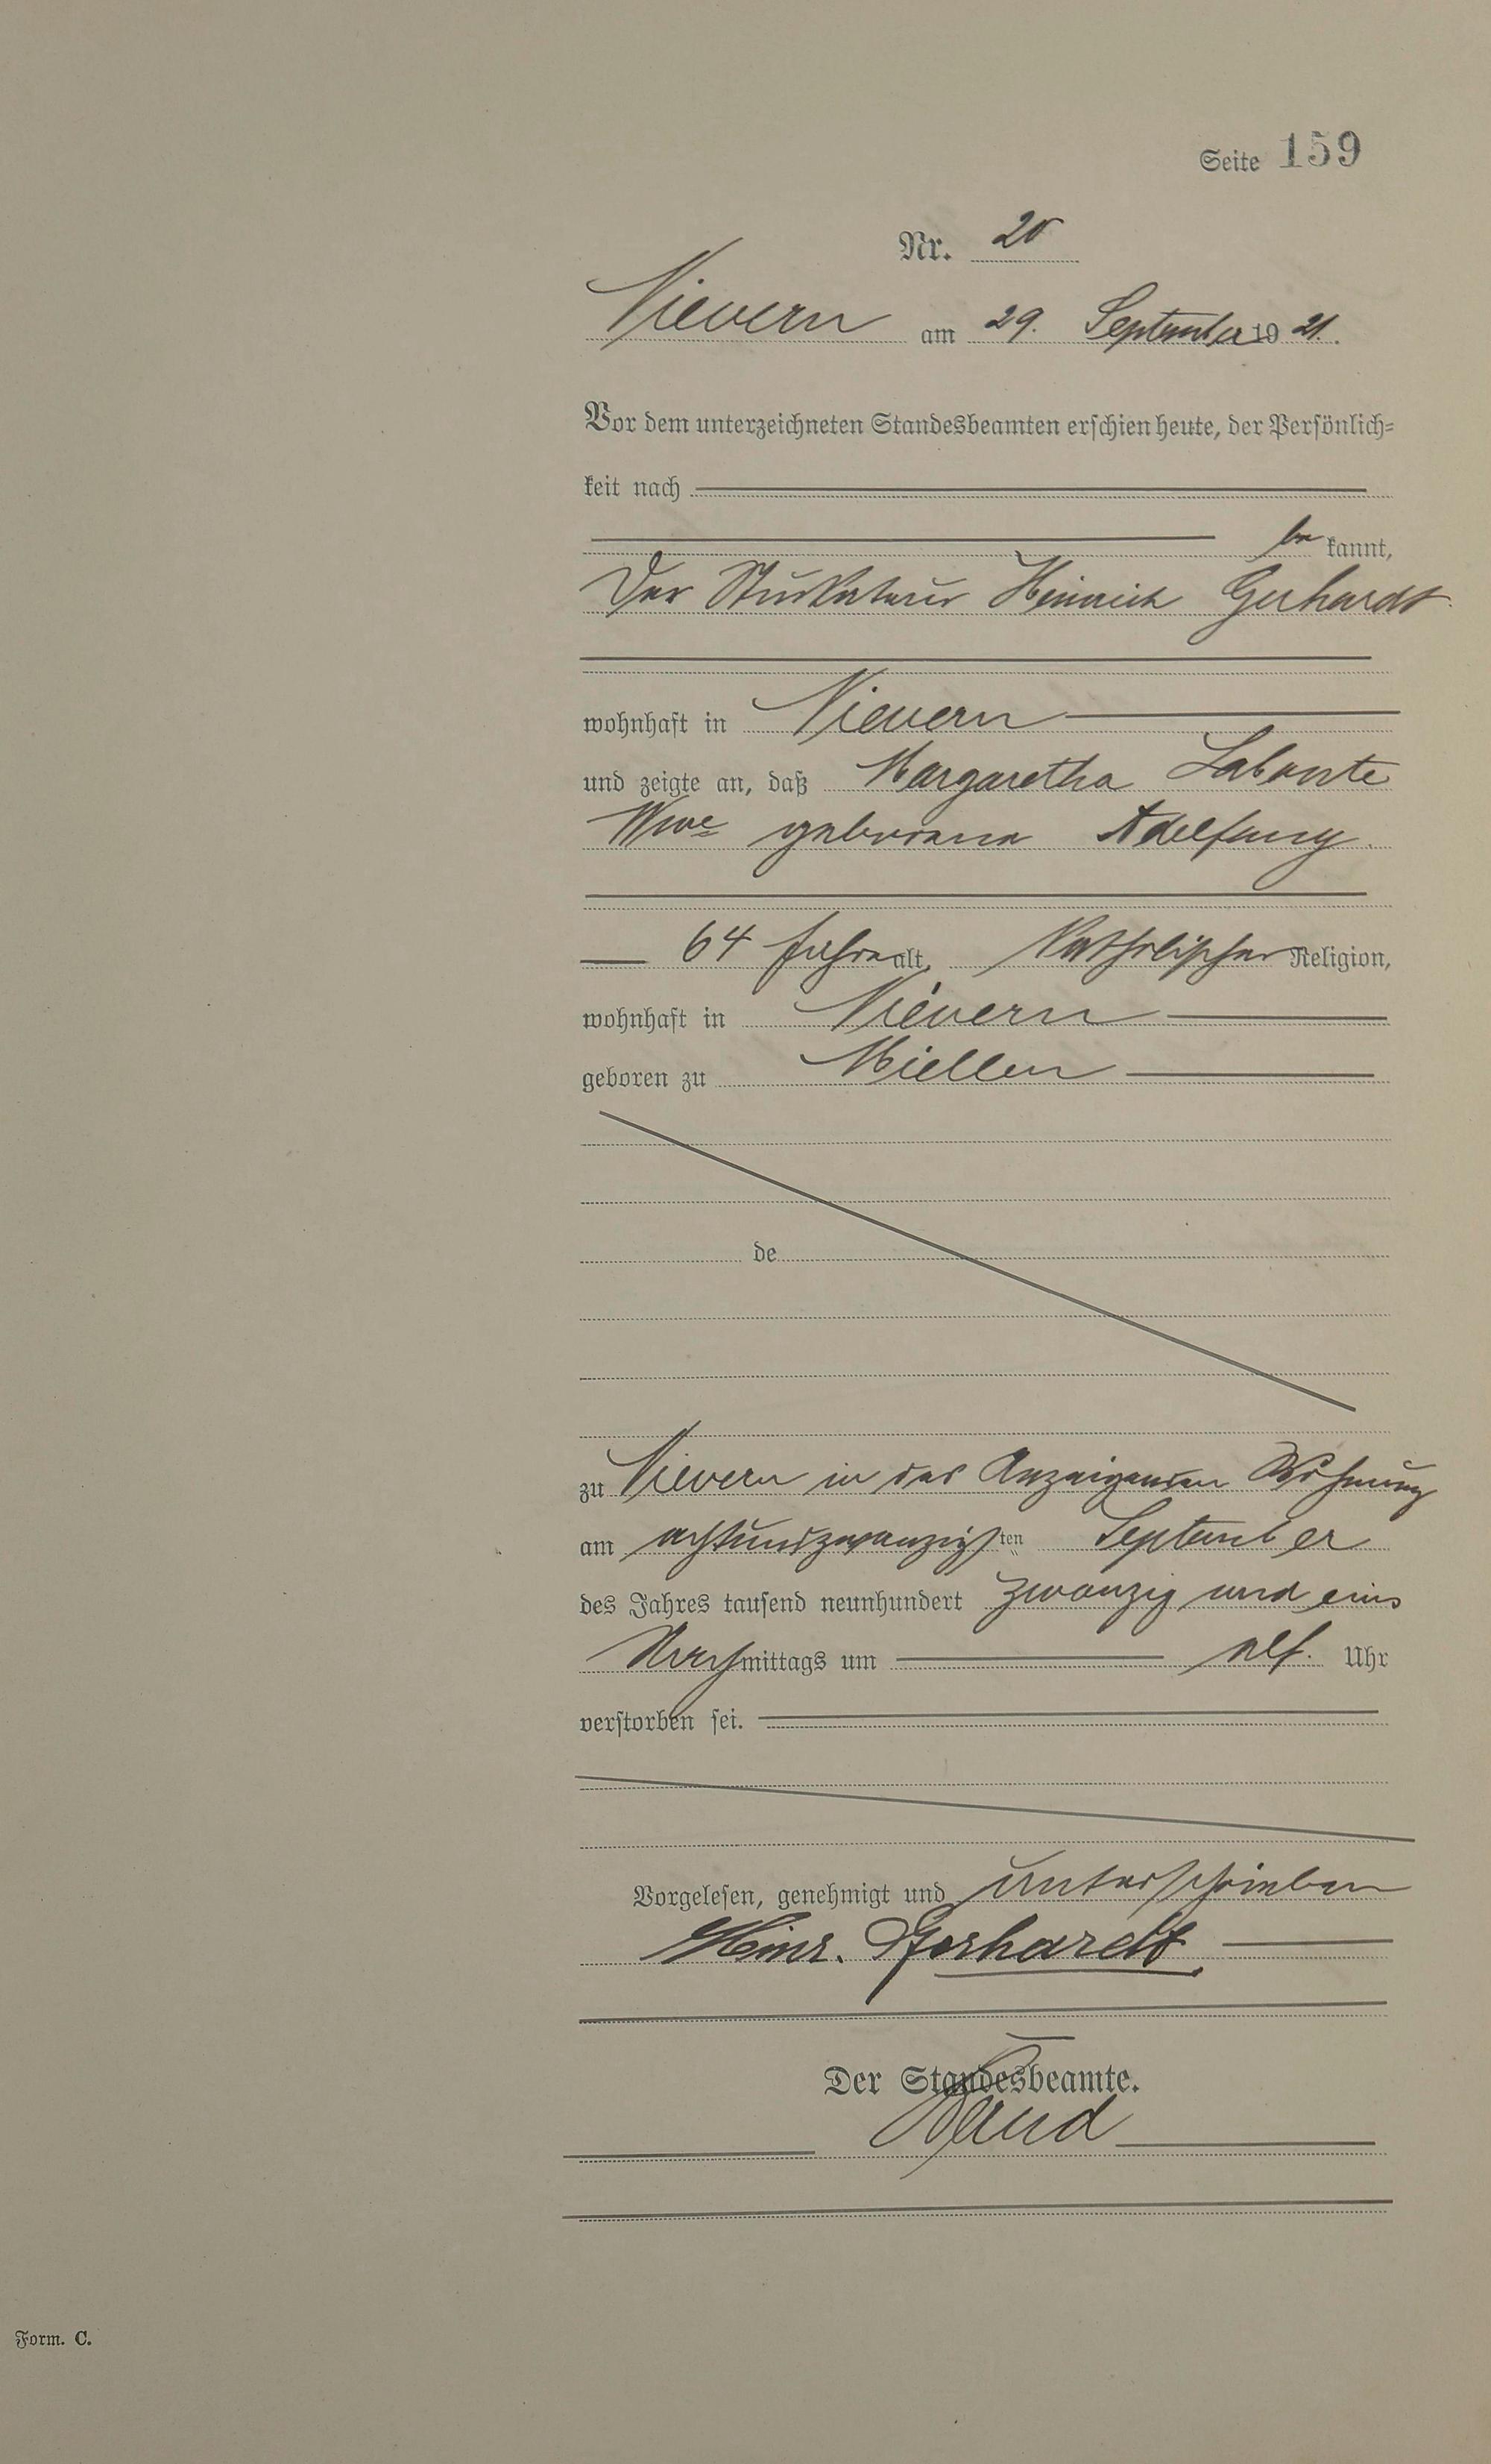 Seite 159
Nr. 20
Nievern am 29. September 1921.
Vor dem unterzeichneten Standesbeamten erschien heute, der Persönlich=
keit nach
bekannt,
Der Stuckateur Heinrich Gerhardt
wohnhaft in Nievern
und zeigte an, daß Margaretha Labonte
Wwe geborene Adelfang
64 Jahre alt, Katholischer Religion,
wohnhaft in Nievern
geboren zu Miellen
de
zu Nievern in des Anzeigenden Wohnung
am achtundzwanzigsten September
des Jahres tausend neunhundert zwanzig und eins
Nachmittags um elf. Uhr
verstorben sei.
Vorgelesen, genehmigt und unterschrieben
Heinr. Gerhardt
Der Standesbeamte.
Form. C.